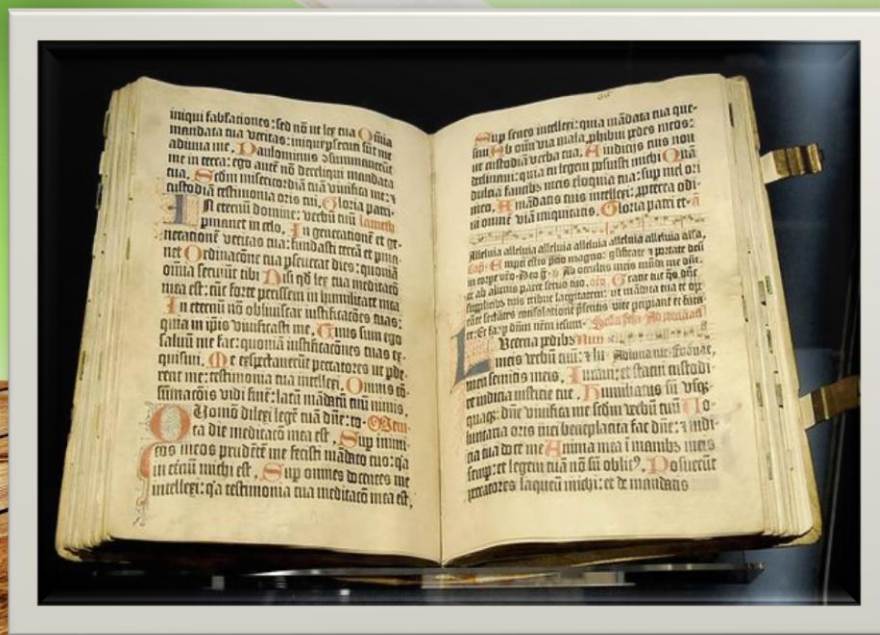 iniqui fabłationes: sed nō ut lex tua Oīnia
mandata tua veritas: inique psecuti sūt me
adiuva me. Paulominus ꝯsummaverūt
me in terra: ego autē nō dereliqui mandata
tua. Scdm misericordiā tuā vivifica me: ⁊
custodiā testimonia oris tui. Gloria patri.
In eternū domine: verbū tuū
pmanet in celo. In generationē et ge-
nerationē veritas tua: fundasti terrā et pma-
net Ordinacōne tua pseverat dies: quoniā
omīa serviūt tibi Nisi qd lex tua meditacō
mea est: tūc forte perissem in humilitate mea
In eternū nō obliviscar iustificacōes tuas:
quia in ipis vivificasti me. Tuus sum ego
salvū me fac: quoniā iustificacōnes tuas ex-
quisivi. Me exspectaverūt peccatores ut pde-
rent me: testimonia tua intellexi. Omnis cō-
sūmacōis vidi finē: latū mādatū tuū nimis.
Quomō dilexi legē tuā dñe: to-
ta die meditacō mea est. Sup inimi-
cos meos prudētē me fecisti mādato tuo: q'a
in eternū michi est. Sup omnes docentes me
intellexi: q'a testimonia tua meditacō mea est.
Sup senes intellexi: quia mādata tua que-
sivi Ab omī via mala phibui pdes meos:
ut custodiā verba tua. A iudicijs tuis non
declinavi: quia tu legem posuisti michi Quā
dulcia faucibꝫ meis eloquia tua: sup mel ori
meo. A mādatis tuis intellexi: ꝓpterea odi-
vi omnē viā iniquitatis. Gloria patri et
Alleluia alleluia alleluia alleluia alleluia alleluia
Empti estis ptio magno: glificate ⁊ portate deū
in corpe vrō Ab occultis meis mūda me dñe.
et ab alienis parce servo tuo.
Lucerna pedibꝫ
meis verbū tuū:
meis semitis meis. Iuravi: et statui custodi-
re iudicia iusticie tue. Humiliatus sū usqꝫ-
quaqꝫ: dñe vivifica me scdm verbū tuū Vo-
luntaria oris mei beneplacita fac dñe: ⁊ iudi-
cia tua doce me Anima mea ī manibꝫ meis
semp: et legem tuā nō sū oblit⁹. Posuerūt
peccatores laqueū michi: et de mandatis